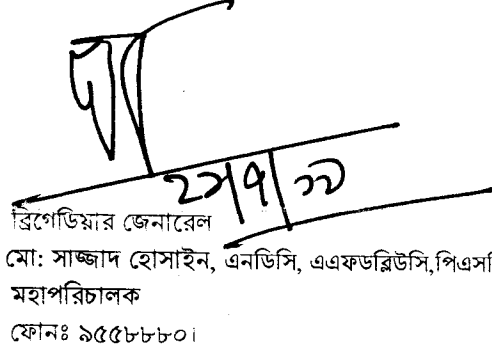 ব্রিগেডিয়ার জেনারেল
মো: সাজ্জাদ হোসাইন, এনডিসি, এএফডব্লিউসি,পিএসসি
মহাপরিচালক
ফোনঃ ৯৫৫৮৮৮০।